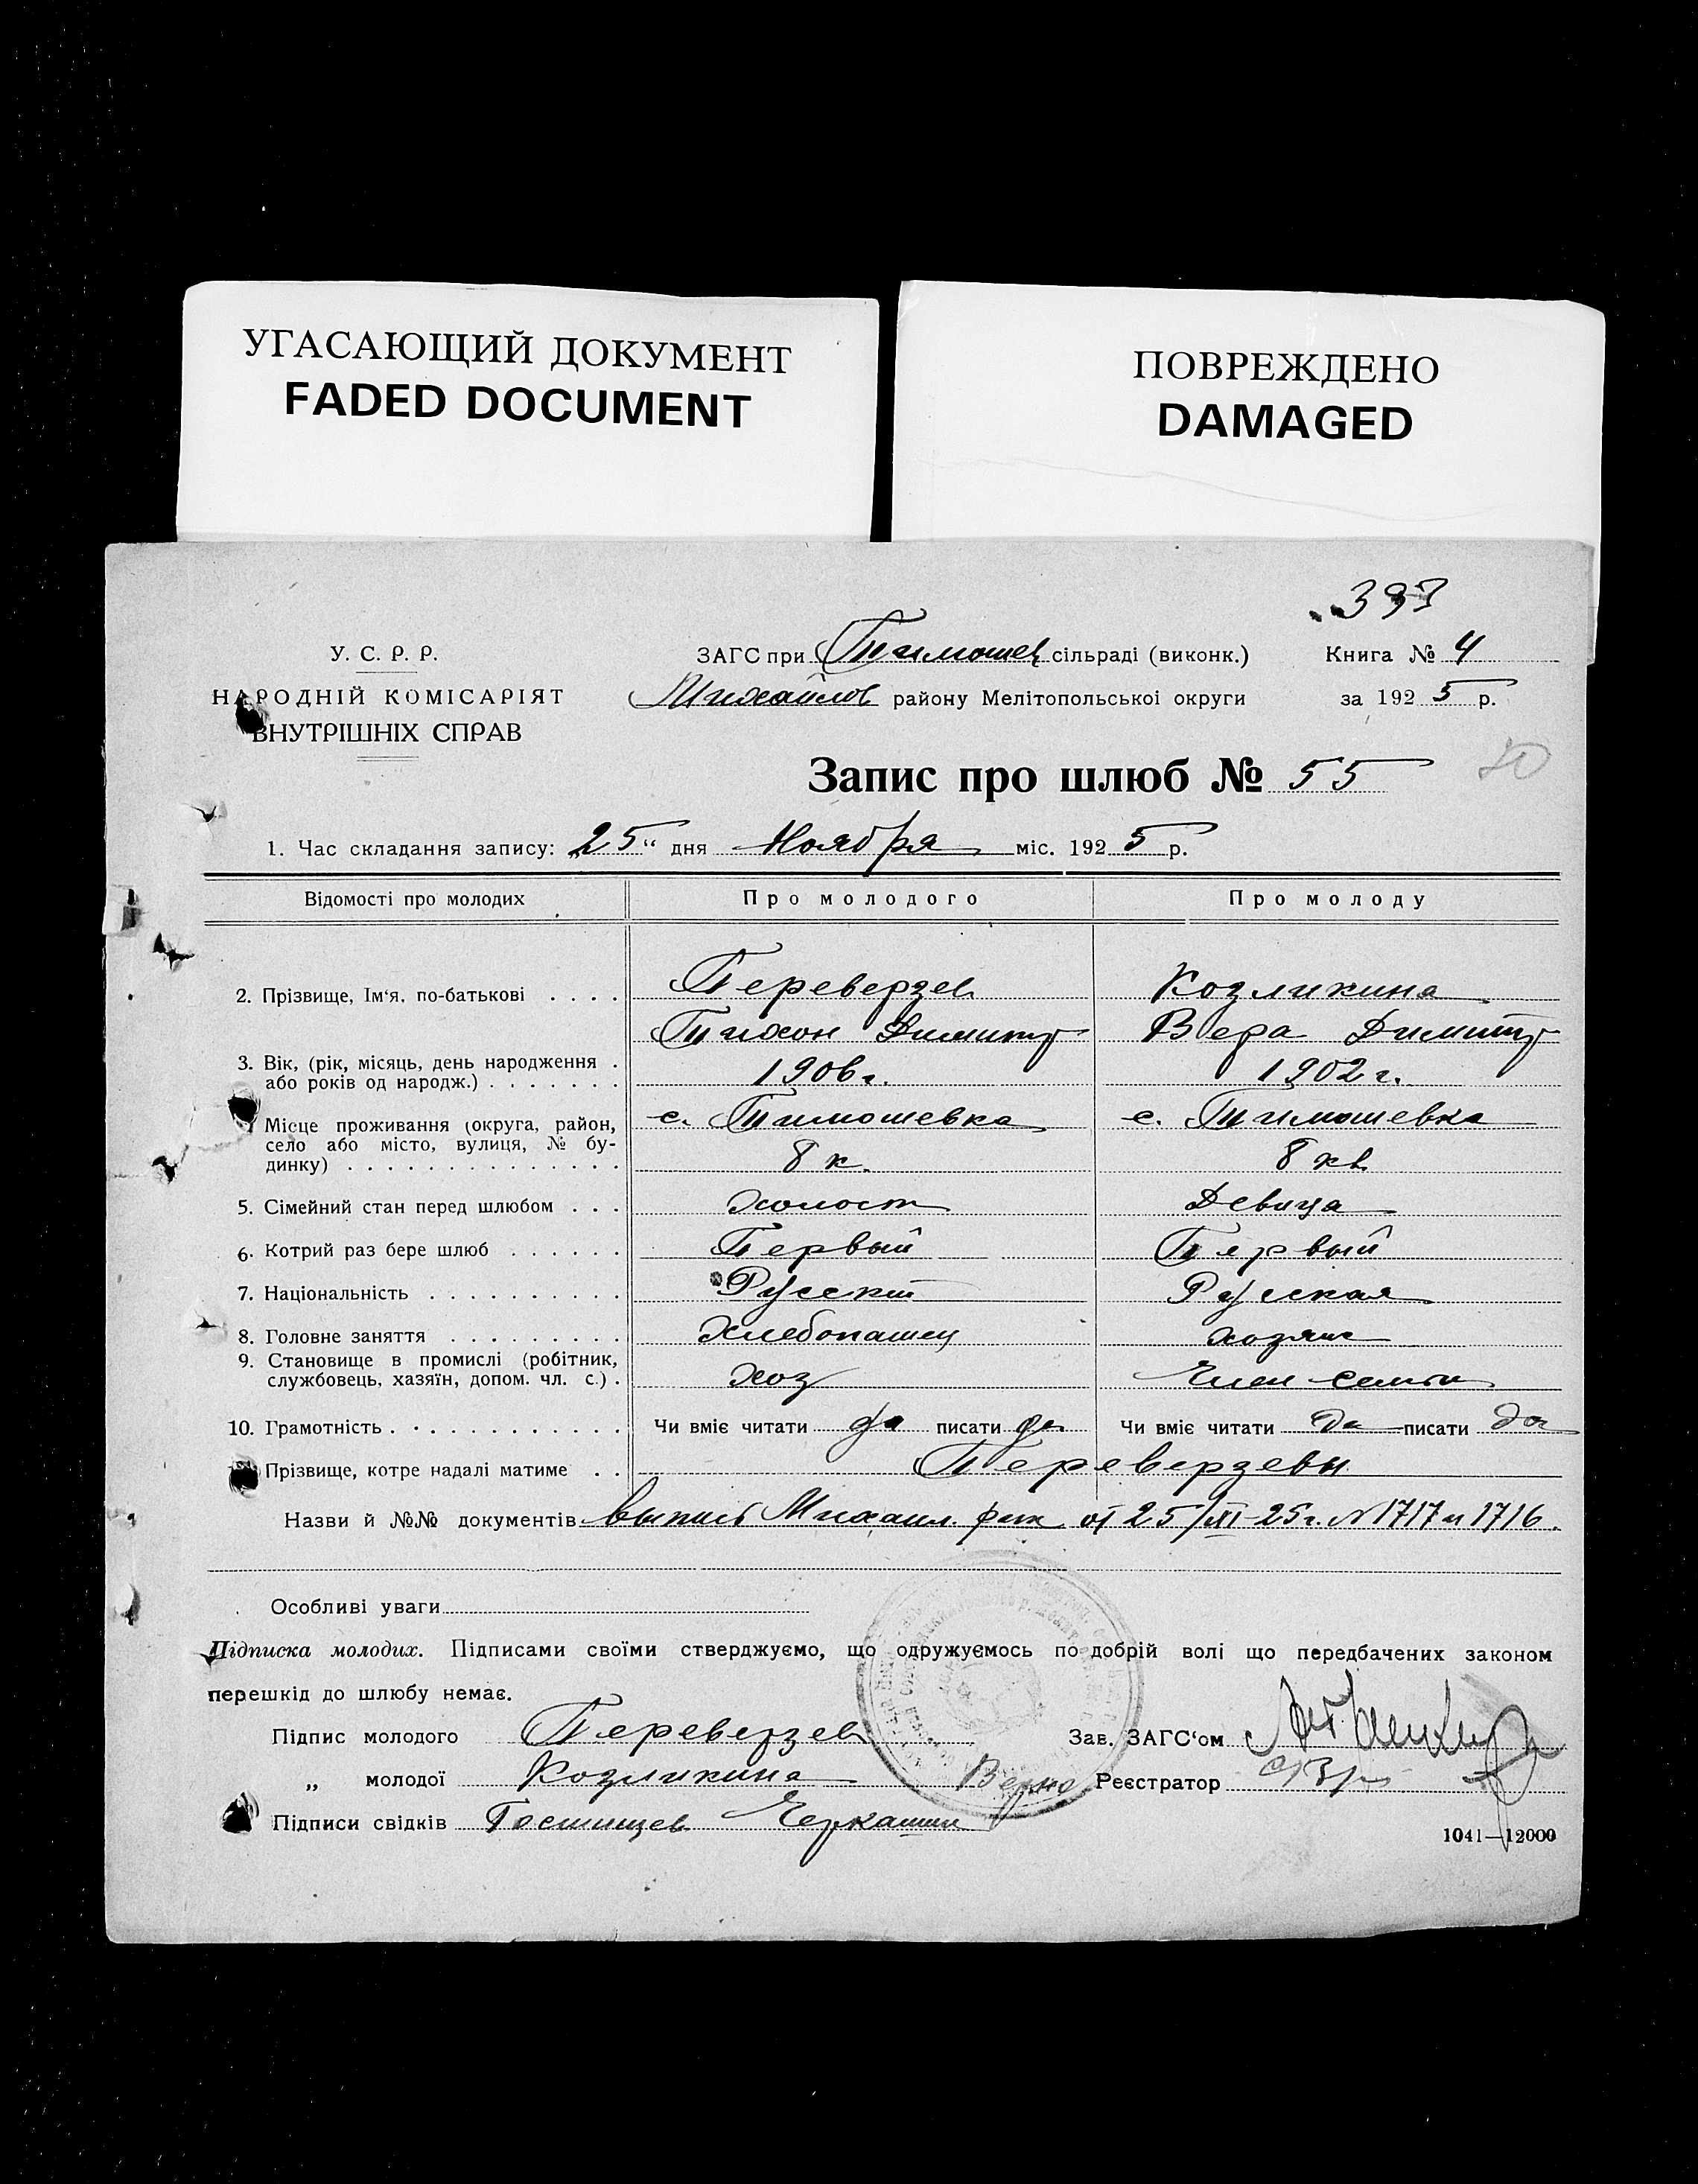 УГАСАЮЩИЙ ДОКУМЕНТ
FADED DOCUMENT
ПОВРЕЖДЕНО
DAMAGED
У. С. Р. Р.
НАРОДНІЙ КОМІСАРІЯТ
ВНУТРІШНІХ СПРАВ
ЗАГС при Тимошев сільраді (виконк.)
Михайлов району Мелітопольської округи
Книга № 4
за 1925 р.
Запис про шлюб № 55
1. Час складання запису: „25“ дня Ноября міс. 1925 р.
Відомості про молодих Про молодого Про молоду
2. Прізвище, Ім‘я, по-батькові . . . . Переверзев Козликина
Тихон Димитр Вера Димитр
3. Вік, (рік, місяць, день народження .
або років од народж.) . . . . . . . 1906 г. 1902 г.
Місце проживання (округа, район,
село або місто, вулиця, № бу-
динку) . . . . . . . . . . . . . .
с. Тимошевка с. Тимошевка
8 к. 8 кв
5. Сімейний стан перед шлюбом . . . холост Девица
6. Котрий раз бере шлюб . . . . . . Первый Первый
7. Національність . . . . . . . . . . Русский Русская
8. Головне заняття . . . . . . . . . Хлебопашец хозяйк
9. Становище в промислі (робітник,
службовець, хазяїн, допом. чл. с.) . Хоз Член семьи
10. Грамотність . . . . . . . . . . . . Чи вміє читати да писати да Чи вміє читати да писати да
Прізвище, котре надалі матиме . . Переверзевы
Назви й №№ документів выпись Михаил. рик от 25/XI-25г. №1717 и 1716.
Особливі уваги
Підписка молодих. Підписами своїми стверджуємо, що одружуємось по добрій волі що передбачених законом
перешкід до шлюбу немає.
Підпис молодого Переверзев Зав. ЗАГС‘ом
„ молодої Козликина Верно Реєстратор
Підписи свідків Гостищев Черкашин
1041—12000